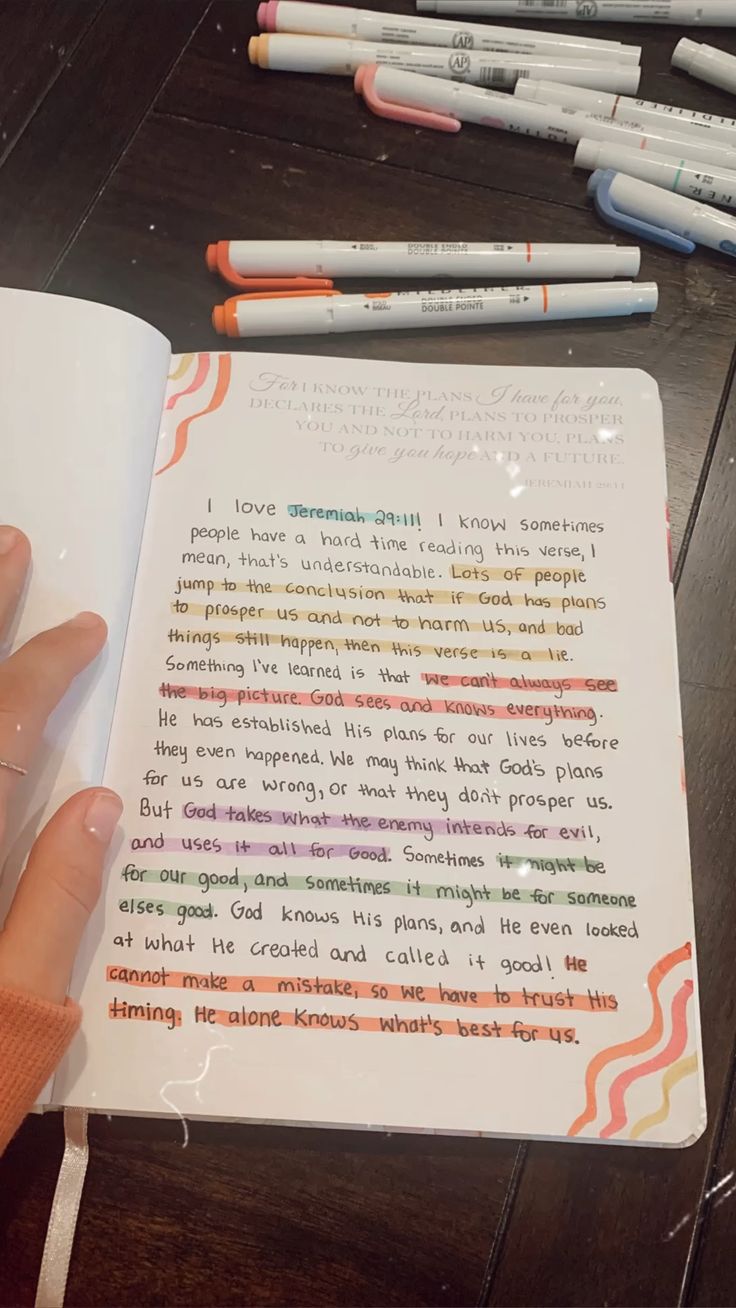 AP
AP
AP
MILD
DOUBLE ENDED
DOUBLE POINTE
MILDLINER.
BISEAU
DOUBLE ENDED
DOUBLE POINTE
For I KNOW THE PLANS I have for you,
DECLARES THE Lord, PLANS TO PROSPER
YOU AND NOT TO HARM YOU, PLANS
TO give you hope AND A FUTURE.
JEREMIAH 29:11
I love Jeremiah 29:11! I know sometimes
people have a hard time reading this verse, I
mean, that's understandable. Lots of people
jump to the conclusion that if God has plans
to prosper us and not to harm us, and bad
things still happen, then this verse is a lie.
Something I've learned is that we can't always see
the big picture. God sees and knows everything.
He has established His plans for our lives before
they even happened. We may think that God's plans
for us are wrong, or that they don't prosper us.
But God takes what the enemy intends for evil,
and uses it all for Good. Sometimes it might be
for our good, and sometimes it might be for someone
elses good. God knows His plans, and He even looked
at what He created and called it good! He
cannot make a mistake, so we have to trust His
timing. He alone knows what's best for us.